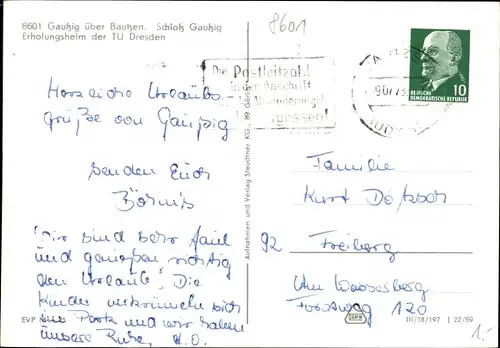 8601 Gaußig über Bautzen. Schloß Gaußig
Erholungsheim der TU Dresden
8601
Die Postleitzahl
in der Anschrift
Absenderangabe
vergessen!
10
DEUTSCHE
DEMOKRATISCHE REPUBLIK
Herzliche Urlaubs-
grüße von Gaußig
senden Euch
Wir sind sehr faul
und genießen richtig
den Urlaub! Die
Kinder verkrümeln sich
im Park und wir haben
unsere Ruhe,
Aufnahmen und Verlag Steudtner KG., 89 Görlitz
Familie
Kurt
92 Freiberg
Am Wasserberg
Forstweg 120
EVP
III/18/197 J 22/69